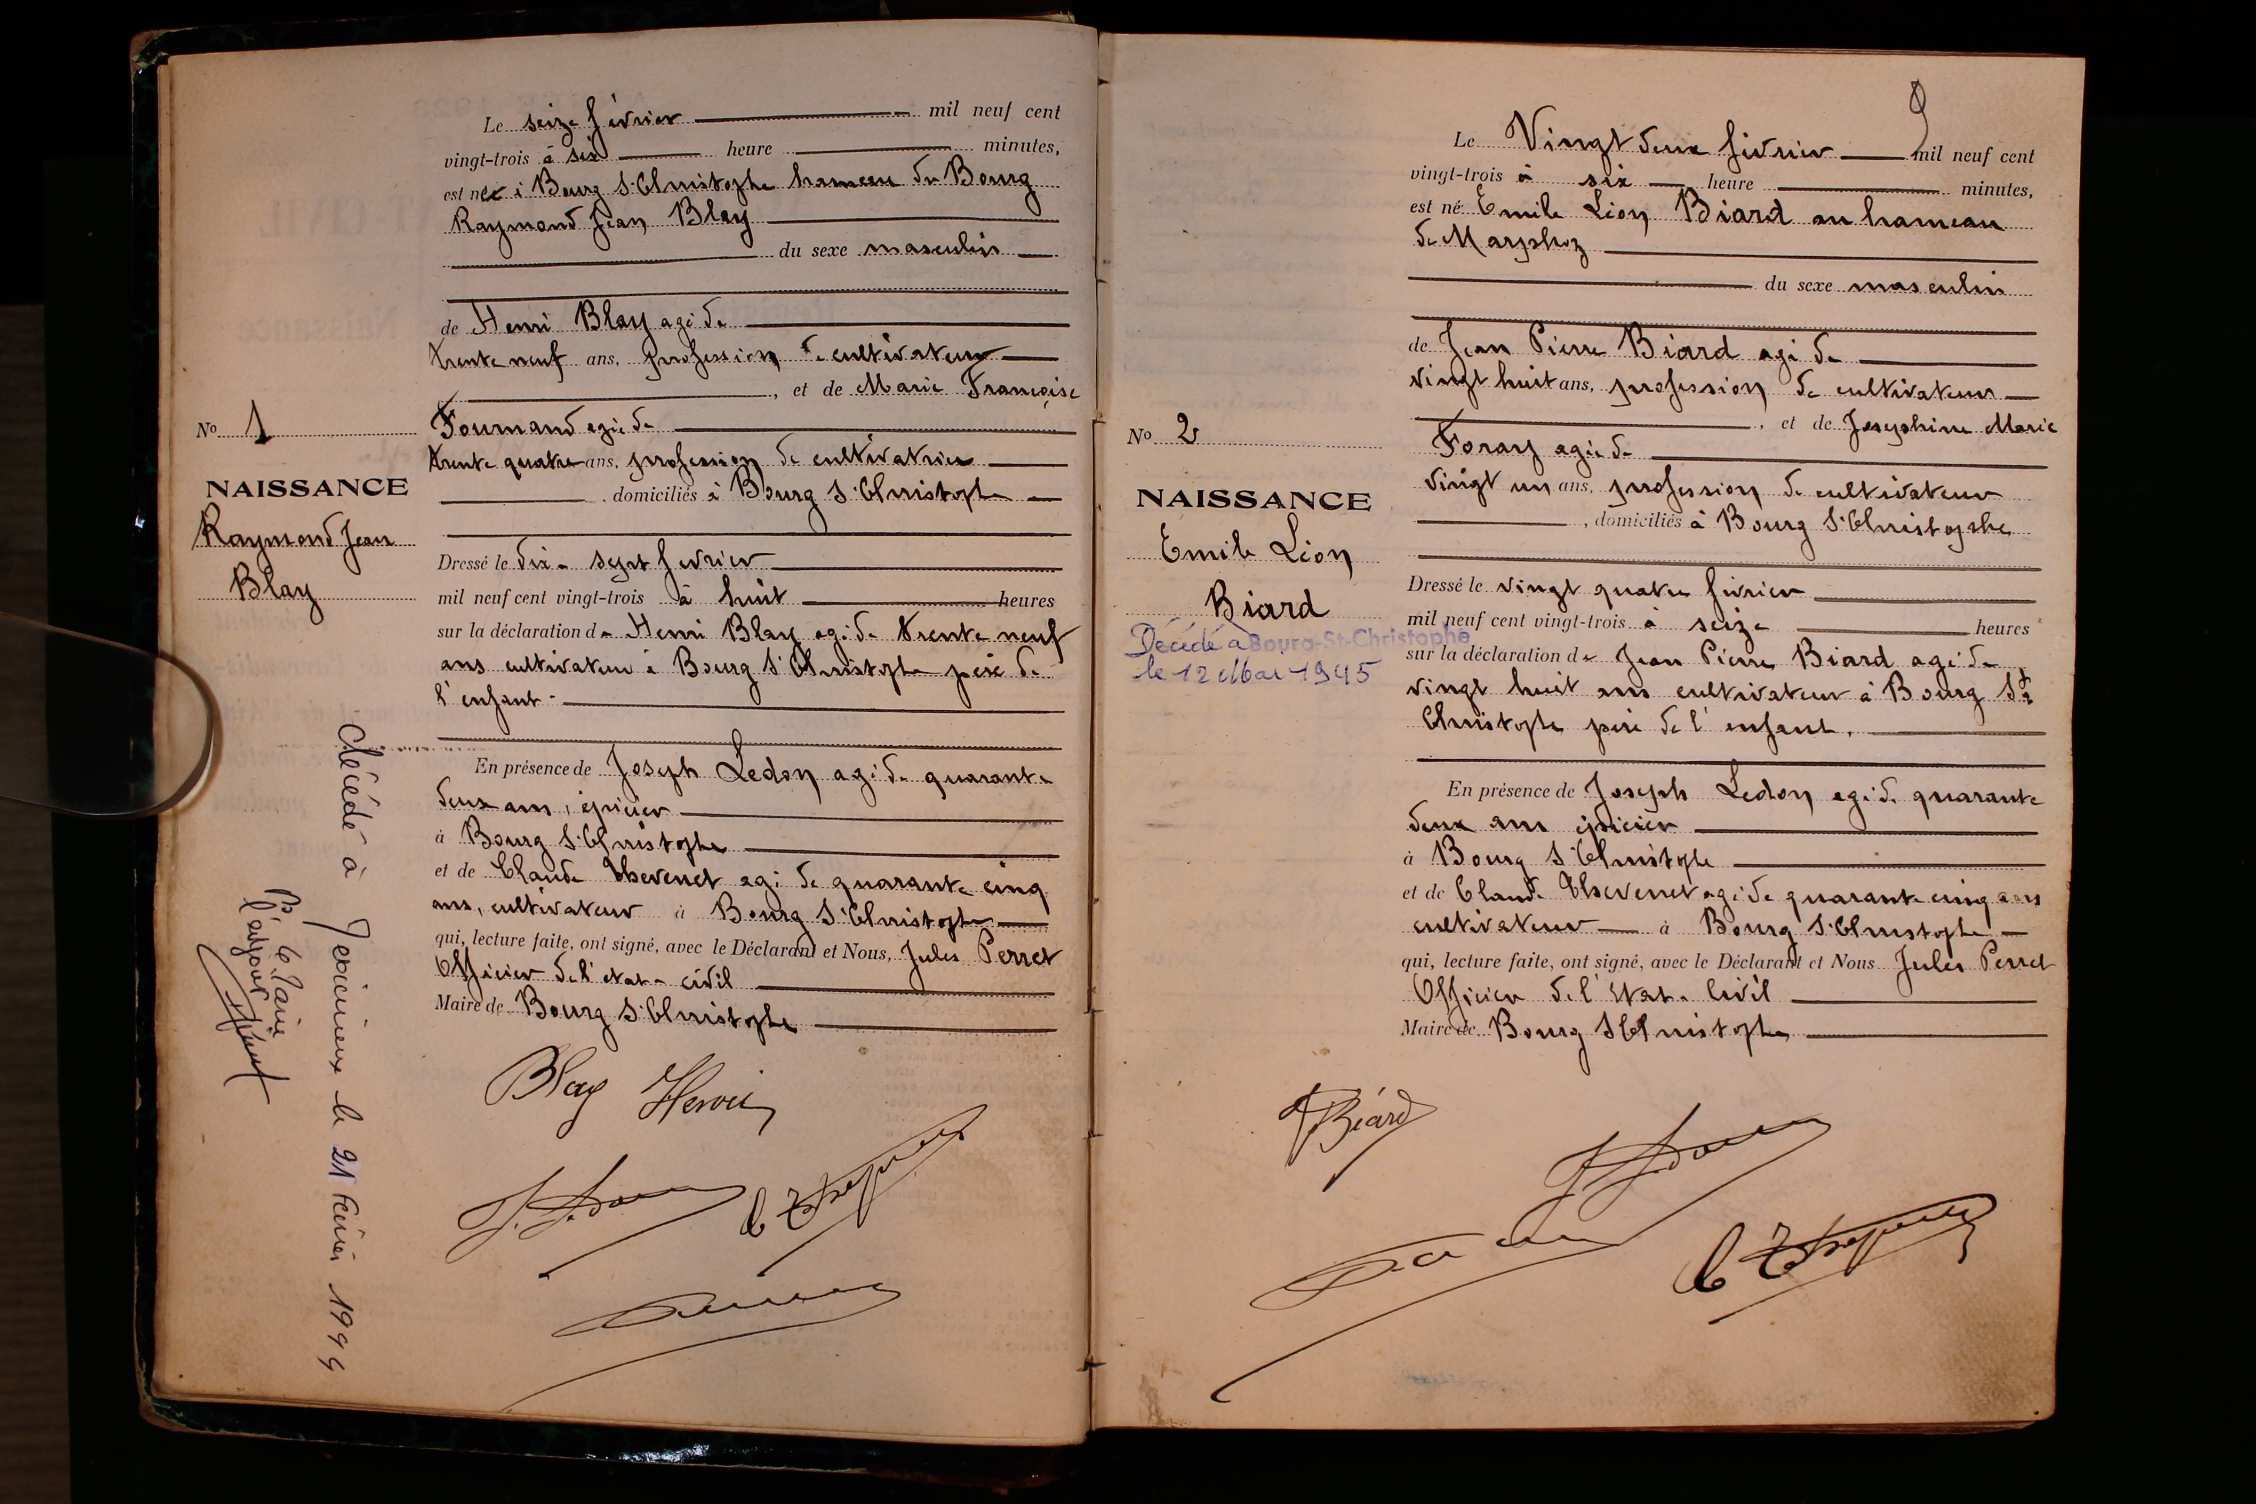 Le seize février mil neuf cent
vingt-trois à six heure minutes,
est né à Bourg St Christophe hameau du Bourg
Raymond Jean Blay
du sexe masculin
de Henri Blay agé de
trente neuf ans, profession de cultivateur
, et de Marie Françoise
agée de
trente quatre ans, profession de cultivatrice
, domiciliés à Bourg St Christophe
Dressé le dix-sept février
mil neuf cent vingt-trois à huit heures
sur la déclaration de Henri Blay agé de trente neuf
ans cultivateur à Bourg St Christophe père de
l'enfant.
En présence de Joseph Ledon agé de quarante
deux ans, épicier
à Bourg St Christophe
et de Claude Thevenet agé de quarante cinq
ans, cultivateur à Bourg St Christophe
qui, lecture faite, ont signé, avec le Déclarant et Nous, Jules Perret
Officier de l'état-civil
Maire de Bourg St Christophe
Blay Henri
No 1
NAISSANCE
Raymond Jean
Blay
Décédé à le 21 Février 1944
P. le Maire
l'adjoint
2
Le Vingt deux février mil neuf cent
vingt-trois à six heure minutes,
est né Emile Léon Biard au hameau
de
du sexe masculin
de Jean Pierre Biard agé de
vingt huit ans, profession de cultivateur
, et de Josephine Marie
Foray agée de
vingt un ans, profession de cultivateur
, domiciliés à Bourg St Christophe
Dressé le vingt quatre février
mil neuf cent vingt-trois à seize heures
sur la déclaration de Jean Pierre Biard agé de
vingt huit ans cultivateur à Bourg St
Christophe père de l'enfant.
En présence de Joseph Ledon agé de quarante
deux ans épicier
à Bourg St Christophe
et de Claude Thevenet agé de quarante cinq ans
cultivateur à Bourg St Christophe
qui, lecture faite, ont signé, avec le Déclarant et Nous Jules Perret
Officier de l'état-civil
Maire de Bourg St Christophe
Biard
No 2
NAISSANCE
Emile Léon
Biard
Décédé à Bourg-St-Christophe
le 12 Mai 1945